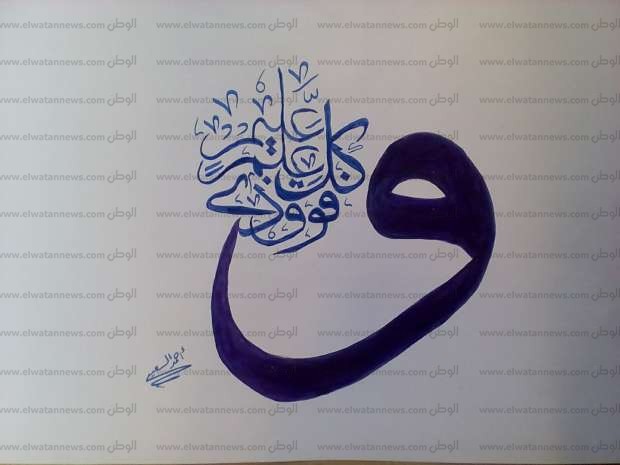 وفوق كل ذي علم عليم
الوطن www.elwatannews.com